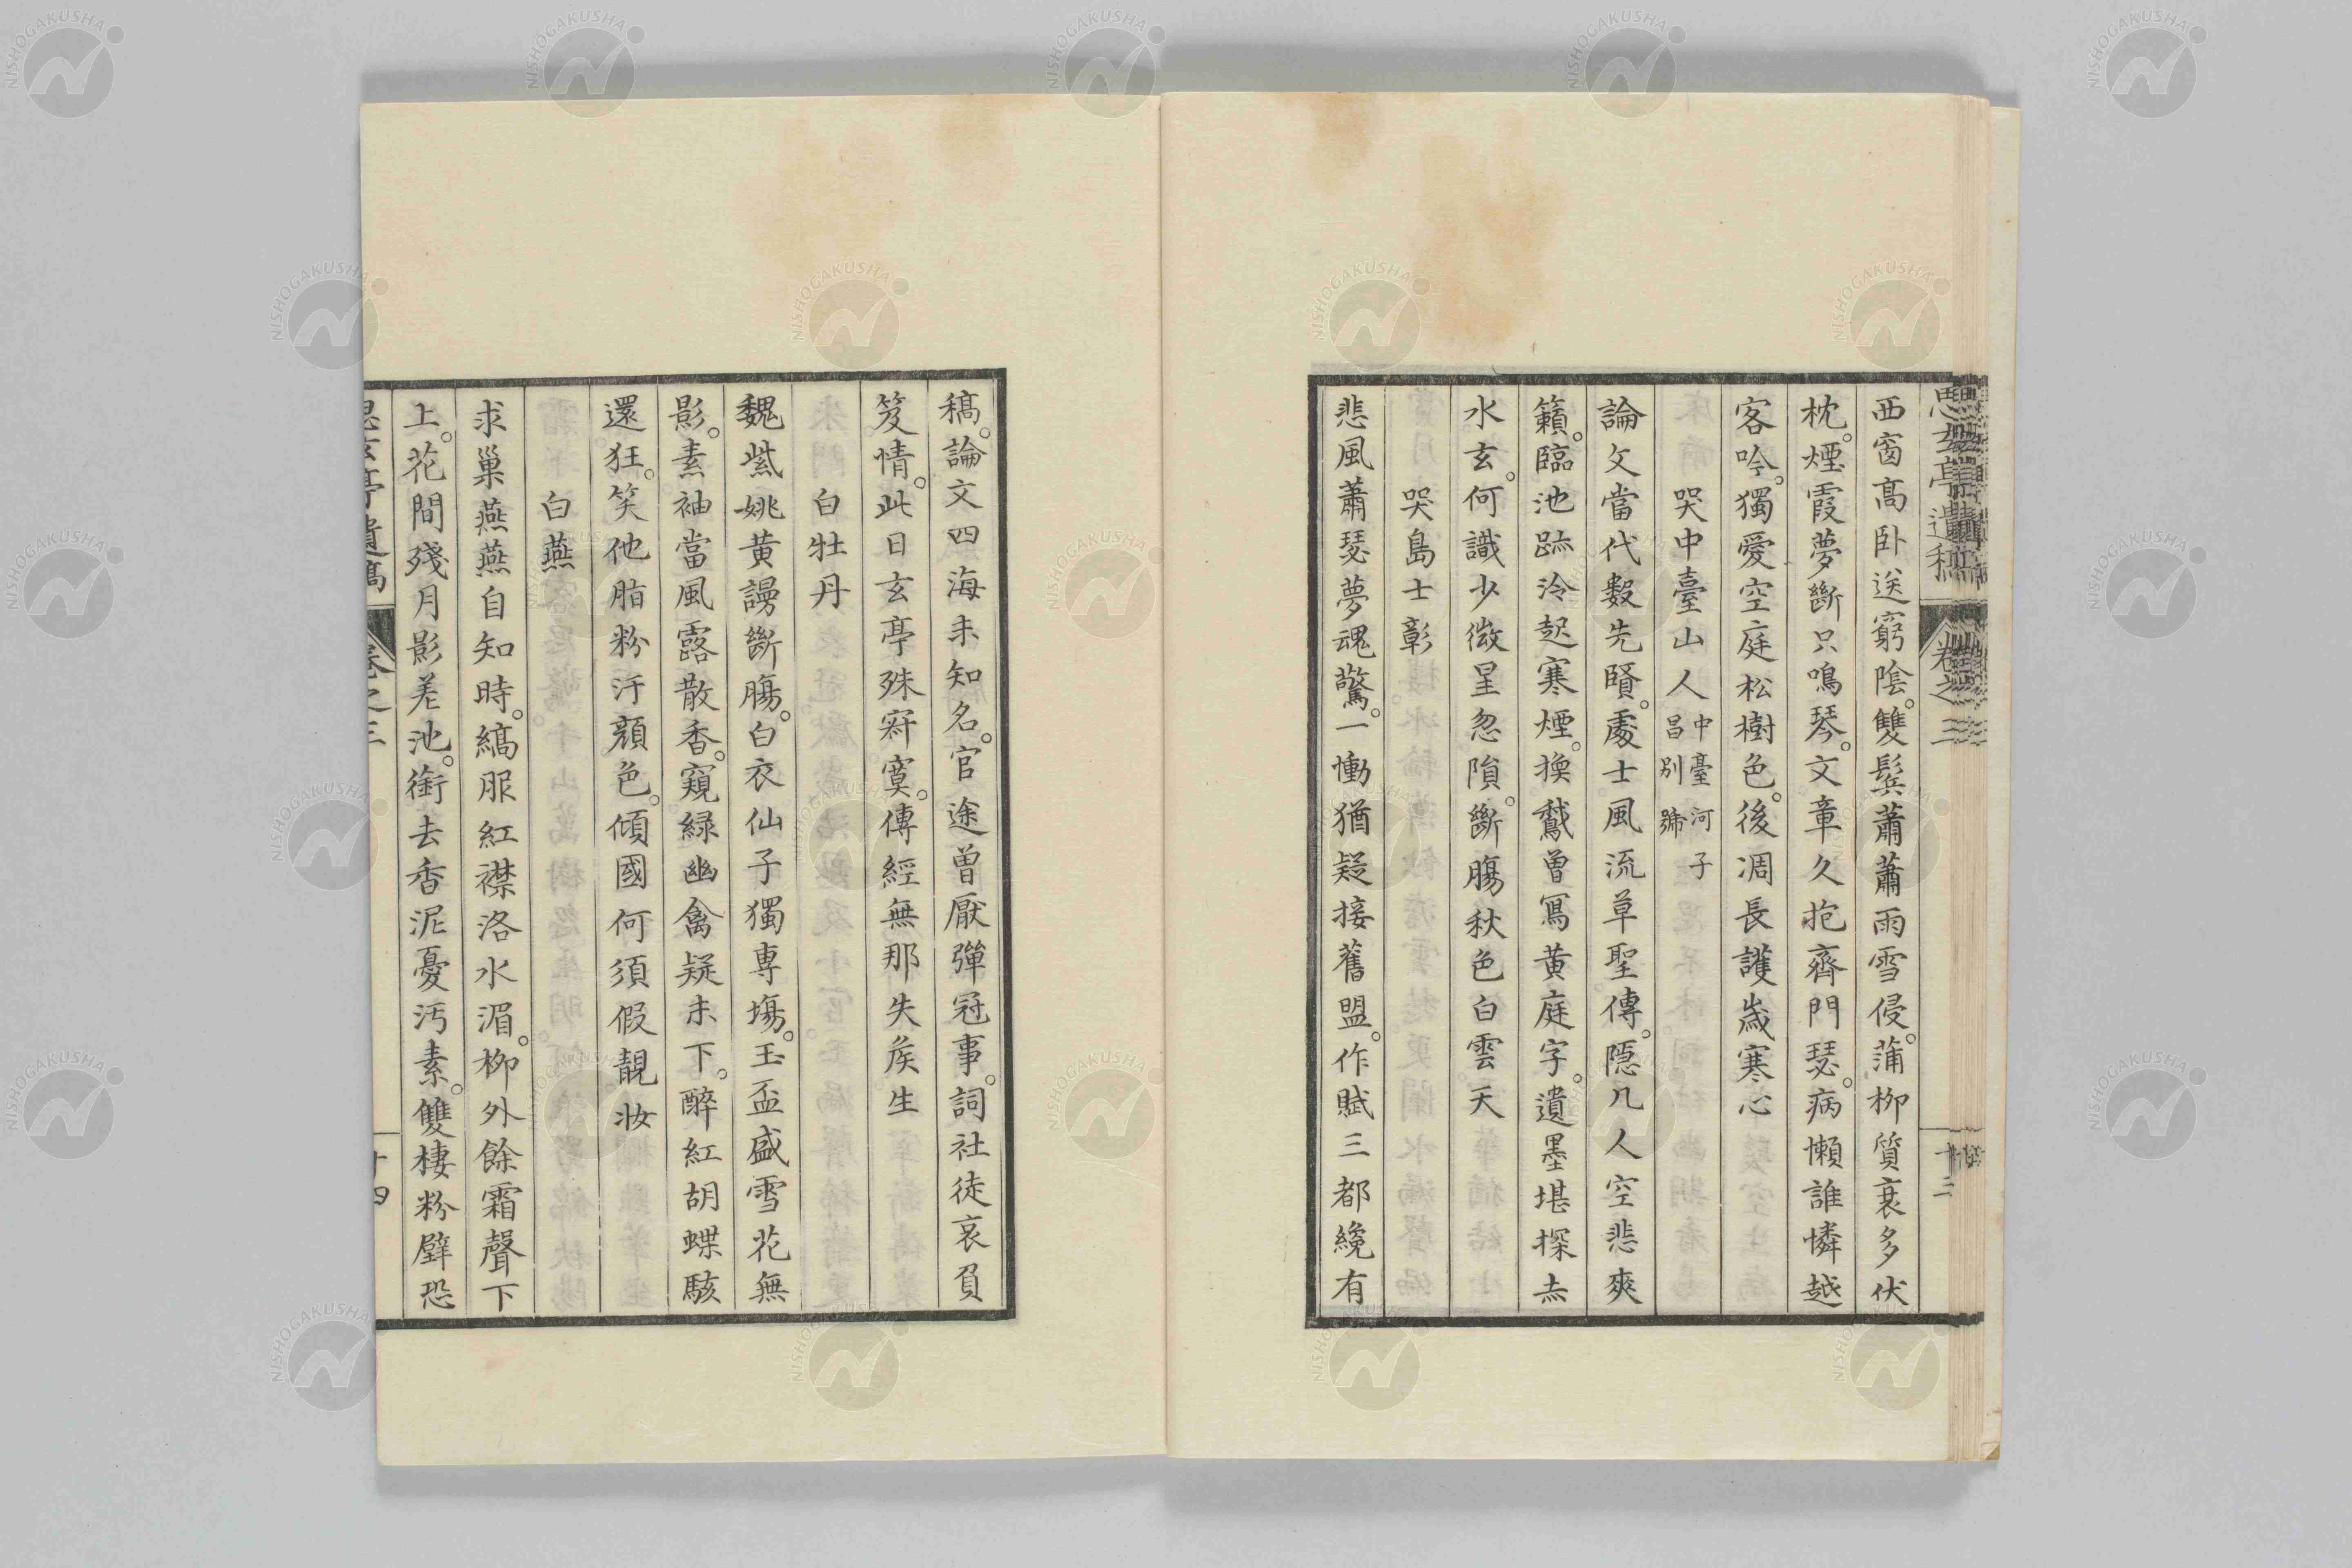 西窗高卧送窮陰。雙鬂蕭蕭雨雪侵。蒲柳質衰多伏
枕。煙霞夢斷只鳴琴。文章久抱齊門瑟。病懶誰憐越
客吟。獨愛空庭松樹色。後凋長護嵗寒心
哭中臺山人 中臺河子昌別號
論文當代數先賢。處士風流草聖傳。隠几人空悲爽
籟。臨池跡冷起寒煙。換鵞曾寫黄庭字。遺墨堪探赤
水玄。何識少微星忽隕。斷腸秋色白雲天
哭島士彰
悲風蕭瑟夢魂驚。一慟猶疑接舊盟。作賦三都纔有
稿。論文四海未知名。官途曾厭彈冠事。詞社徒哀負
笈情。此日玄亭殊寂寞。傳經無那失矦生
白牡丹
魏紫姚黄謾斷腸。白衣仙子獨専塲。玉盃盛雪花無
影。素袖當風露散香。窺緑幽禽疑未下。醉紅胡蝶駭
還狂。笑他脂粉汙顔色。傾國何須假靚妝
白燕
求巢燕燕自知時。縞服紅襟洛水湄。柳外餘霜聲下
上。花間殘月影差池。銜去香泥憂汚素。雙棲粉壁恐
思玄亭遺稿 卷之三 十三
思玄亭遺稿 卷之三 十四
NISHOGAKUSHA